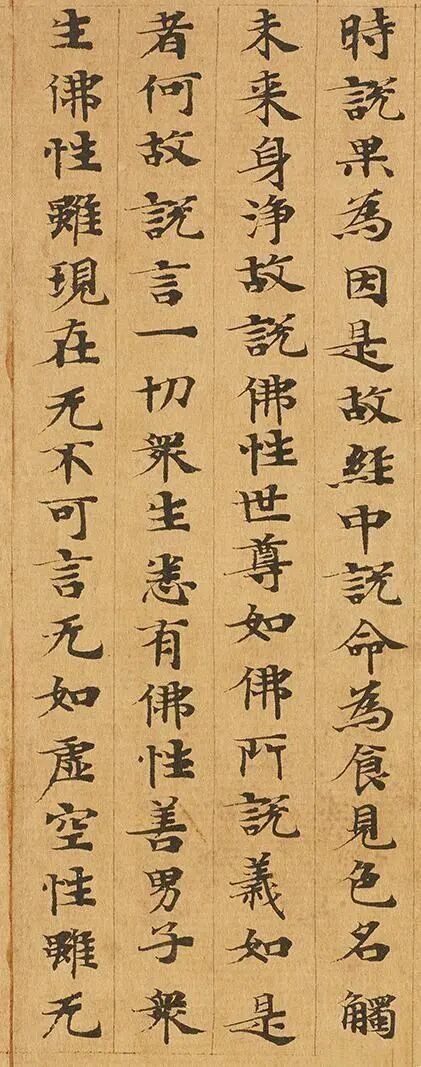 時說果為因是故經中說命為食見色名觸
未来身淨故說佛性世尊如佛所說義如是
者何故說言一切衆生悉有佛性善男子衆
生佛性雖現在无不可言无如虛空性雖无